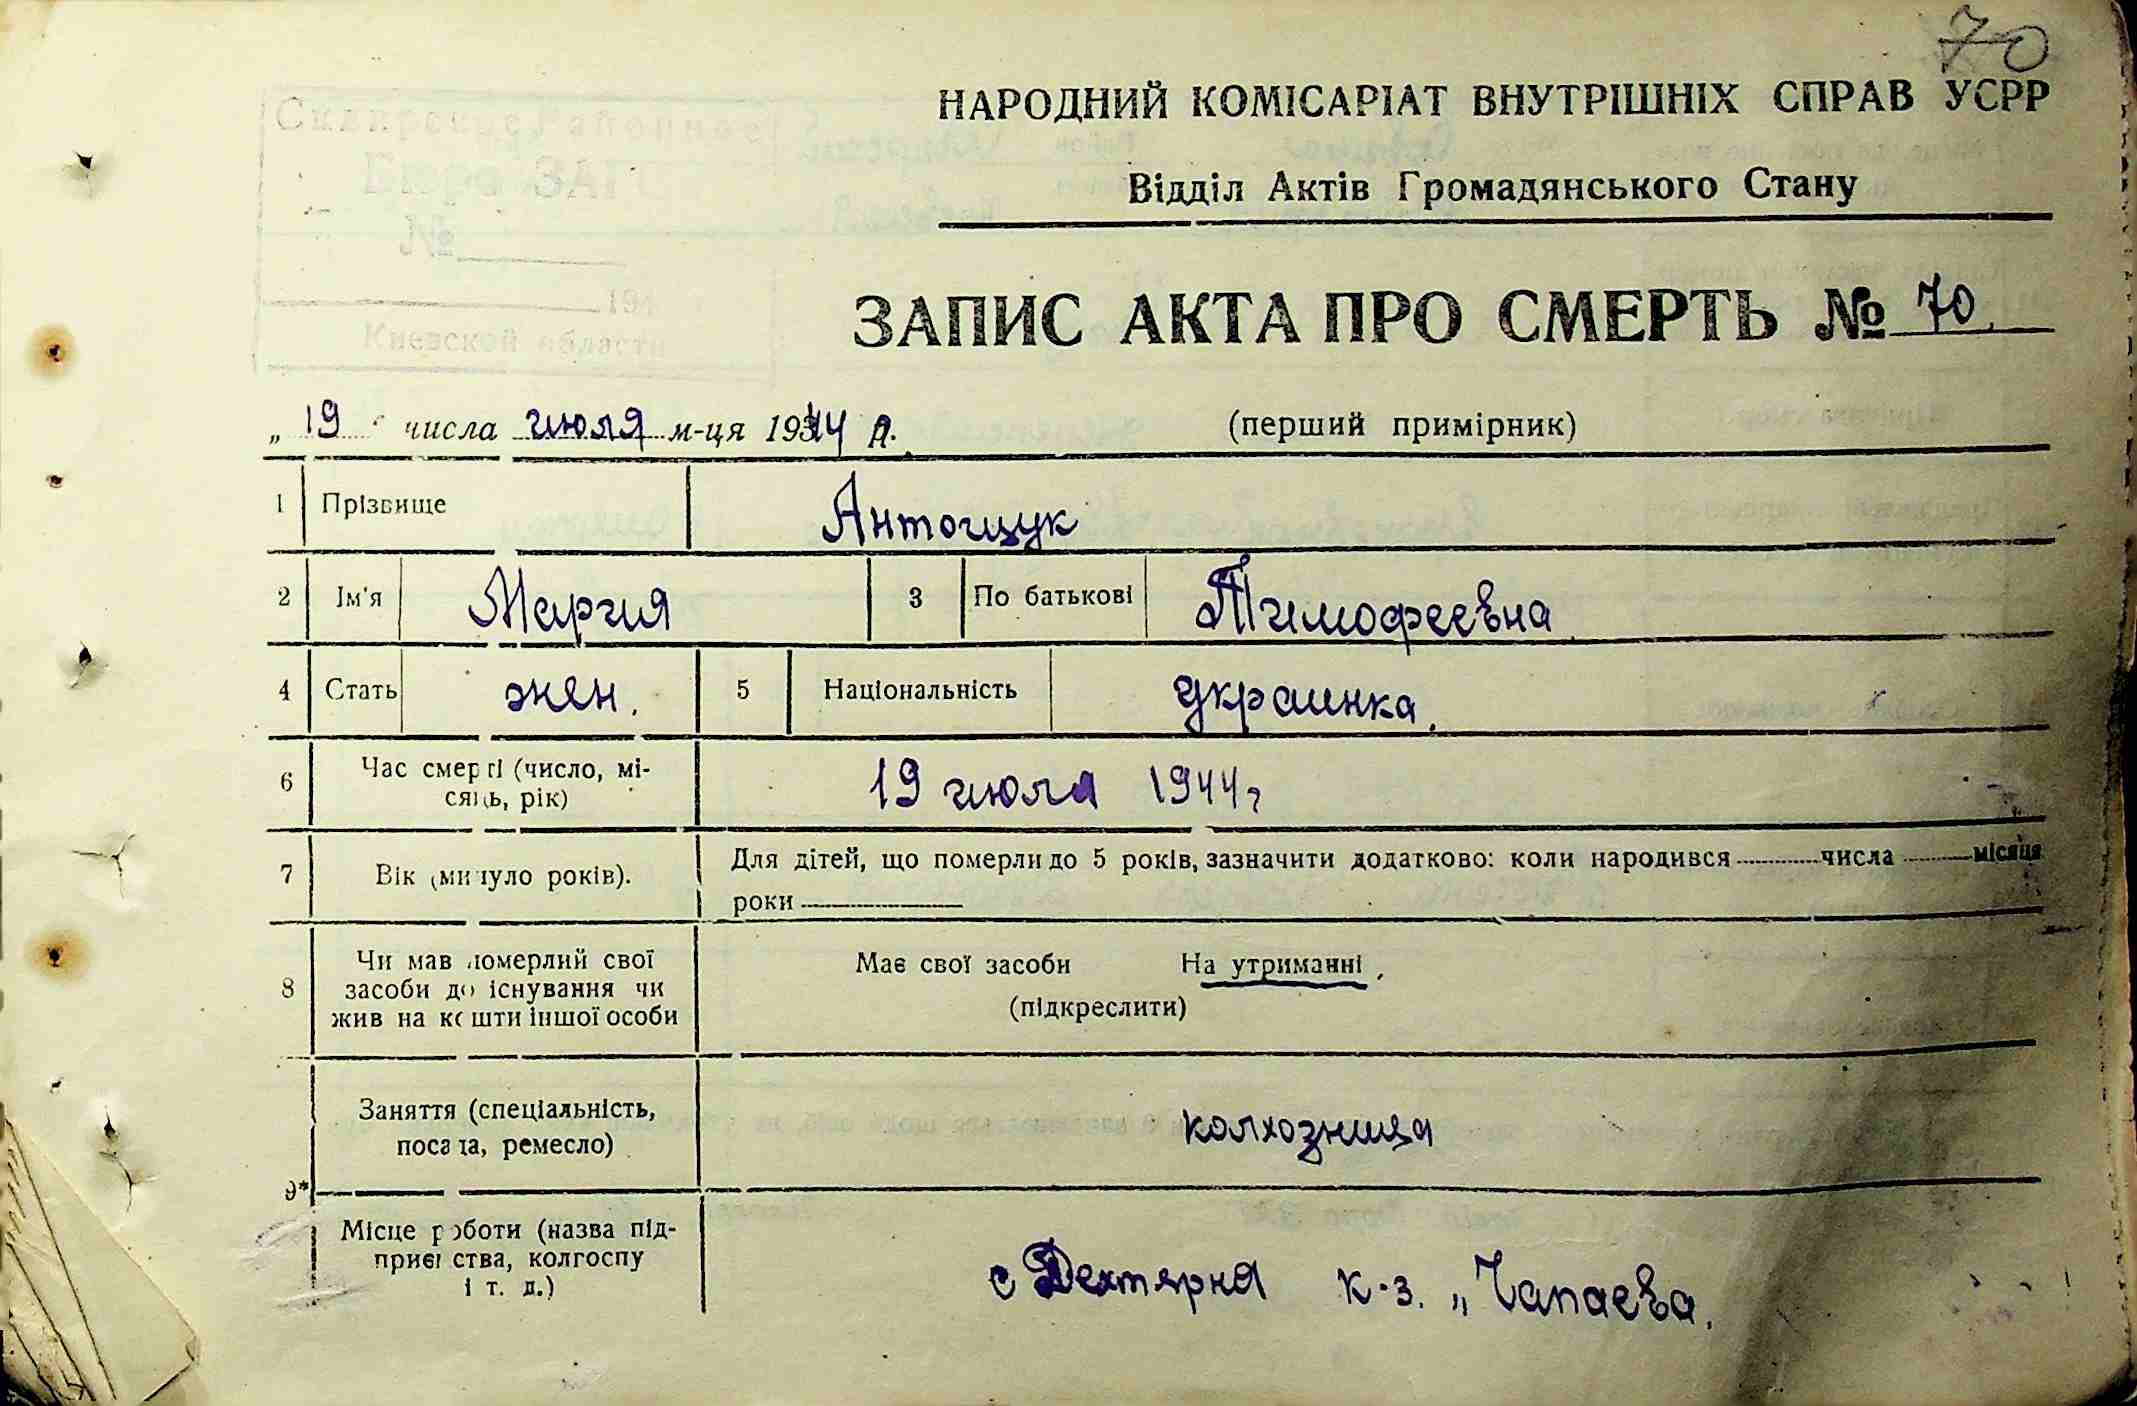 70
НАРОДНИЙ КОМІСАРІАТ ВНУТРІШНІХ СПРАВ УСРР
Відділ Актів Громадянського Стану
Сквирское Районное
Бюро ЗАГС
№
194
Киевской области
ЗАПИС АКТА ПРО СМЕРТЬ № 70.
„ 19 числа июля м-ця 1944 р. (перший примірник)
1 Прізвище Антощук
2 Ім'я Мария 3 По батькові Тимофеевна
4 Стать жен. 5 Національність украинка.
6 Час смерті (число, мі-
сяць, рік) 19 июля 1944 г
7 Вік (минуло років). Для дітей, що померли до 5 років, зазначити додатково: коли народився числа місяця
роки
8 Чи мав померлий свої
засоби до існування чи
жив на кошти іншої особи
Має свої засоби На утриманні
(підкреслити)
Заняття (спеціальність,
посада, ремесло) колхозница
9*
Місце роботи (назва під-
приємства, колгоспу
і т. д.) с Дехтярна к-з. „Чапаева.